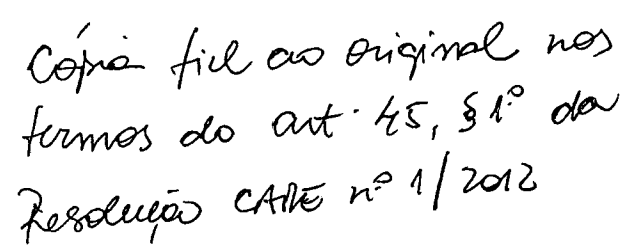 Cópia fiel ao original nos
termos do art. 45, § 1º da
Resolução CADE nº 1/2012